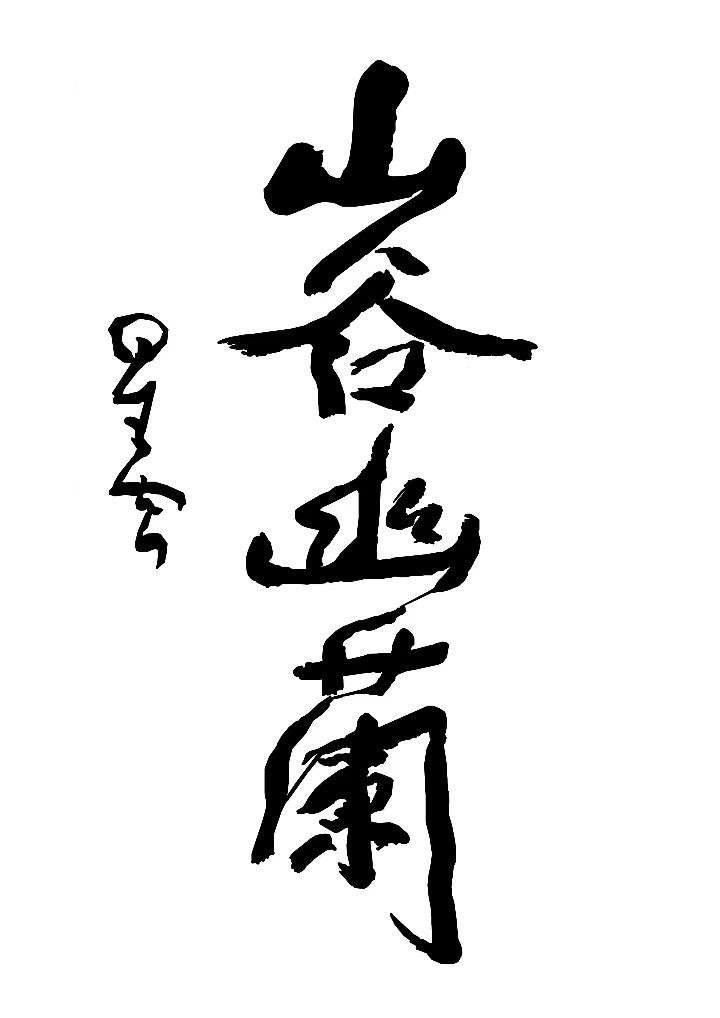 山谷幽蘭
星雲